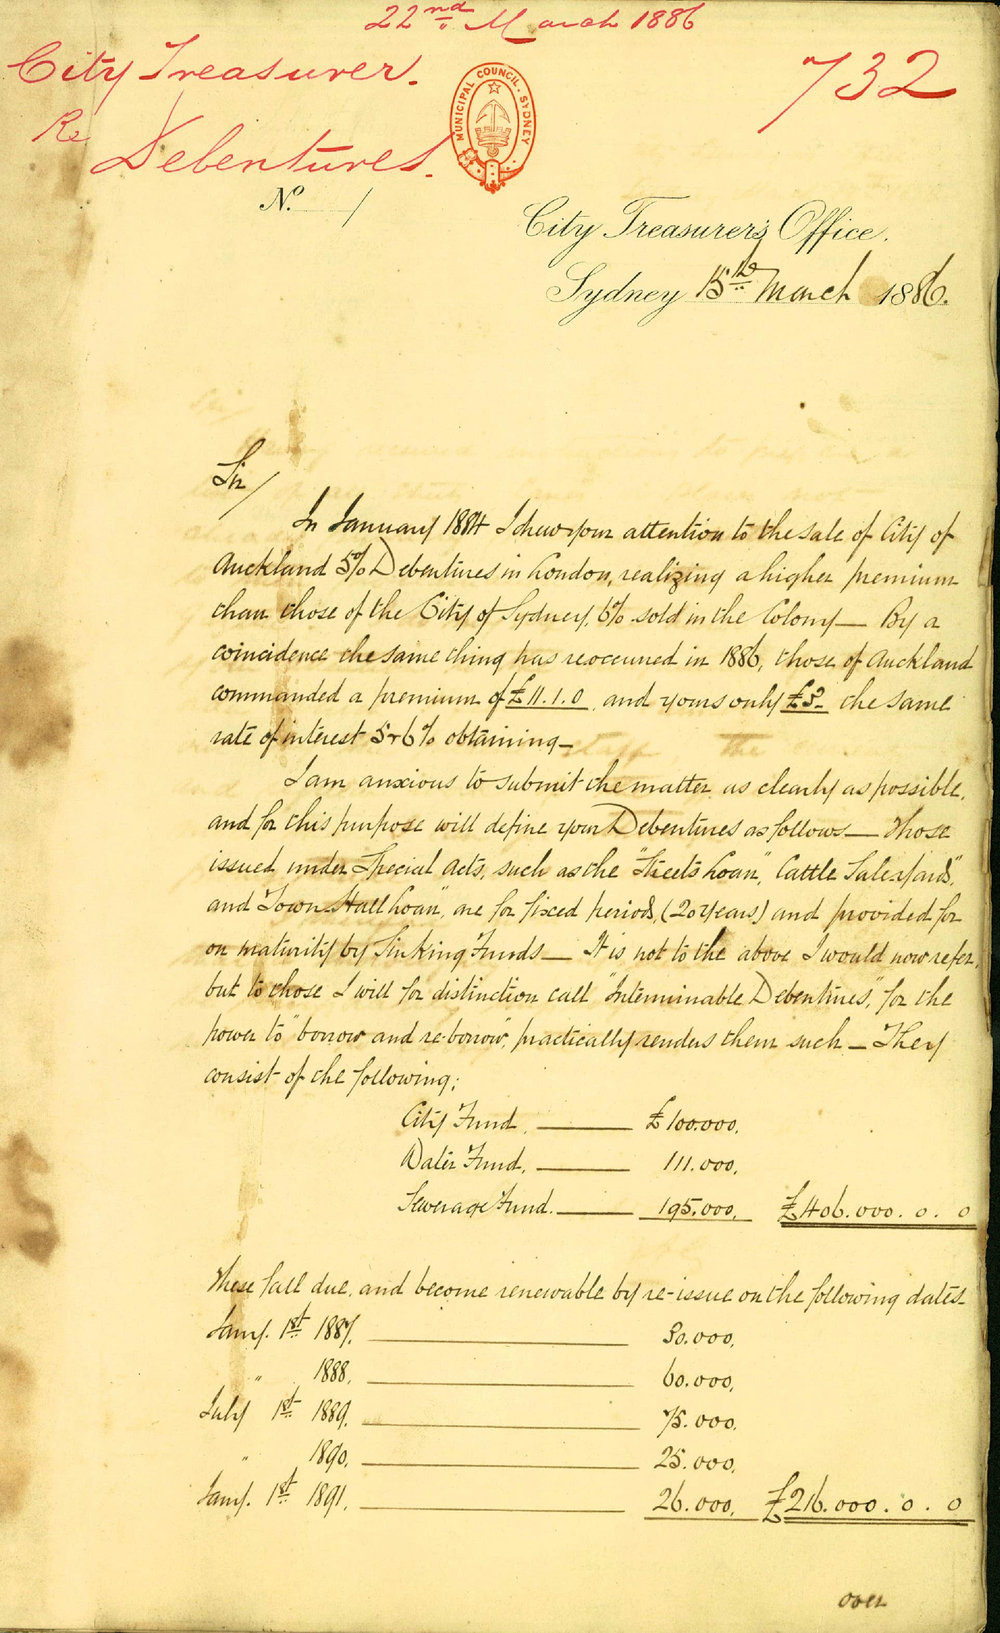 22nd March 1886
City Treasurer.
732
Re
Debentures.
MUNICIPAL COUNCIL · SYDNEY
No. 1
City Treasurer's Office.
Sydney 15th March 1886.
Sir/
In January 1884 I drew your attention to the sale of City of
Auckland 5% Debentures in London, realizing a higher premium
than those of the City of Sydney, 6% sold in the Colony — By a
coincidence the same thing has reoccurred in 1886, those of Auckland
commanded a premium of £11.1.0 and yours only £5. the same
rate of interest 5 & 6% obtaining —
I am anxious to submit the matter as clearly as possible,
and for this purpose will define your Debentures as follows — Those
issued under Special Acts, such as the "Streets Loan", Cattle Saleyards",
and Town Hall Loan", are for fixed periods, (20 Years) and provided for
on maturity by Sinking Funds — It is not to the above I would now refer,
but to those I will for distinction call "Interminable Debentures", for the
power to "borrow and re-borrow", practically renders them such — They
consist of the following;
City Fund. £100.000.
Water Fund. 111.000.
Sewerage Fund. 195.000. £406.000.0.0
These fall due, and become renewable by re-issue on the following dates —
Jany. 1st 1887. 30.000.
" 1888. 60.000.
July 1st 1889. 75.000.
" 1890. 25.000.
Jany. 1st 1891. 26.000. £216.000.0.0
over